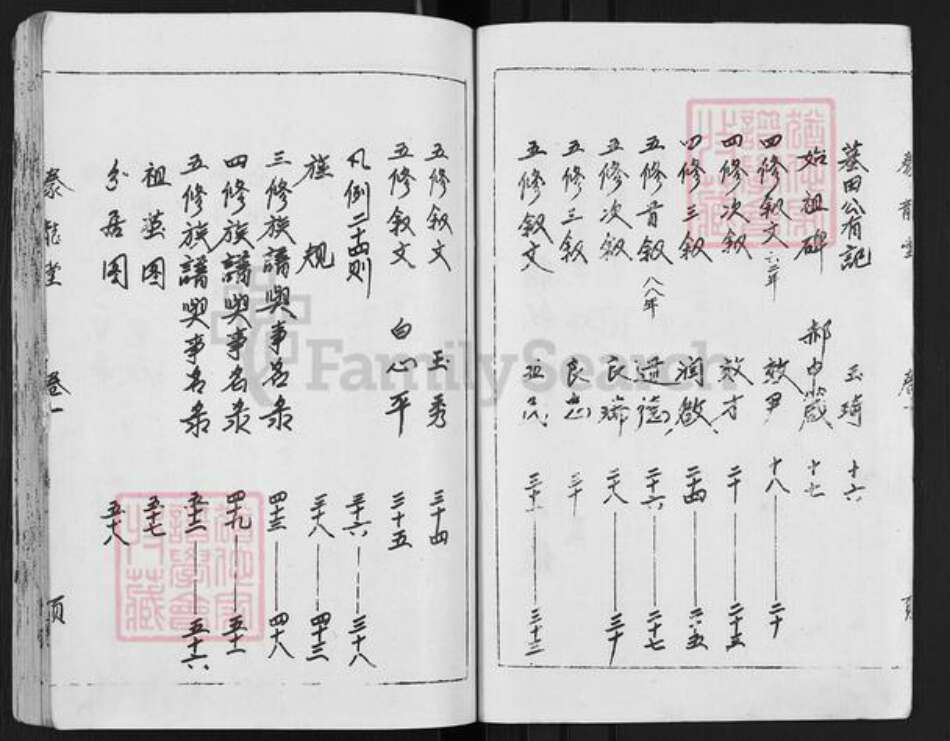 墓田公有記 玉琦 十六
始祖碑 郝中葳 十七
四修叙文 六二年 效尹 十八 二十
四修次叙 效才 二十 二十五
四修三叙 润啟 二十四 二五
五修首叙 八八年 道德 二十六 二十七
五修次叙 良瑞 二十八 三十
五修三叙 良忠 三十
五修叙文 三十三
五修叙文 玉秀 三十四
五修叙文 白心平 三十五
凡例二十四则 三十六 三十八
族规 三十八 四十三
三修族譜與事名录 四十三 四十八
四修族譜與事名录 四十九 五十一
五修族譜與事名录 五十二 五十六
祖茔图 五十七
分居图 五十八
泰龍堂 卷一 页
FamilySearch